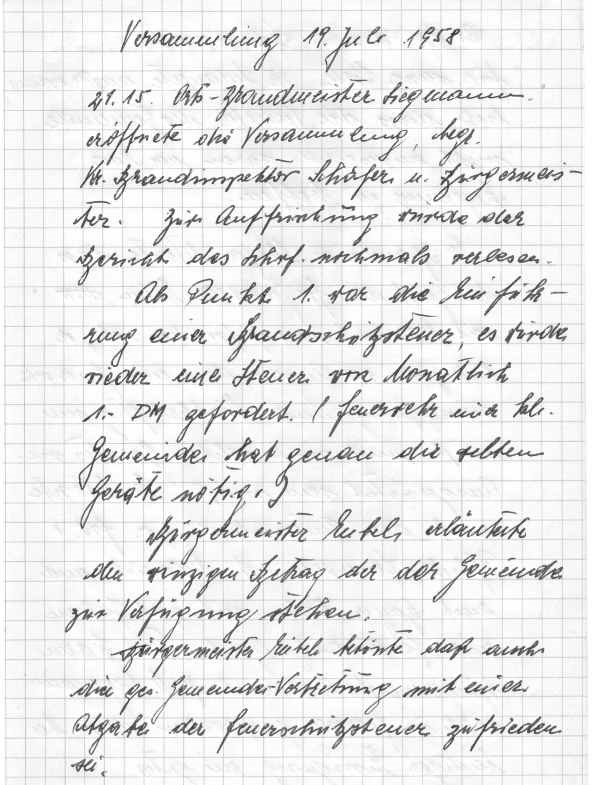 Versammlung 19. Juli 1958
21.15. Orts-Brandmeister Siegmann
eröffnete die Versammlung, begr.
Kr. Brandinspektor Schäfer u. Bürgermeis-
ter. Zur Auffrischung wurde der
Bericht des Schrf. nochmals verlesen.
Als Punkt 1. war die Einfüh-
rung einer Brandschutzsteuer, es wurde
wieder eine Steuer von Monatlich
1.- DM gefordert. (Feuerwehr einer kl.
Gemeinde hat genau die selben
Geräte nötig.)
Bürgermeister erläuterte
den winzigen Betrag der der Gemeinde
zur Verfügung stehen.
Bürgermeister betonte daß auch
die ges. Gemeinde-Vertretung mit einer
Abgabe der Feuerschutzsteuer zufrieden
sei.